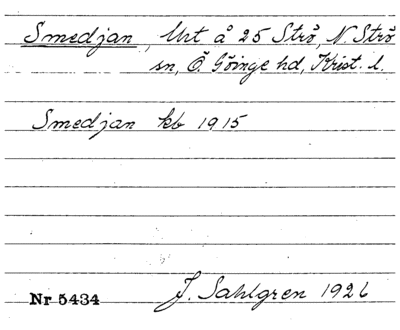 Smedjan, Urt å 25 Strö, N. Strö
sn, Ö. Göinge hd, Krist. l.
Smedjan kb 1915
Nr 5434 J. Sahlgren 1926